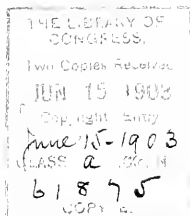 THE LIBRARY OF
CONGRESS.
Two Copies Received
JUN 15 1903
Copyright Entry
June 15-1903
CLASS a XXc. No
61875
COPY B.